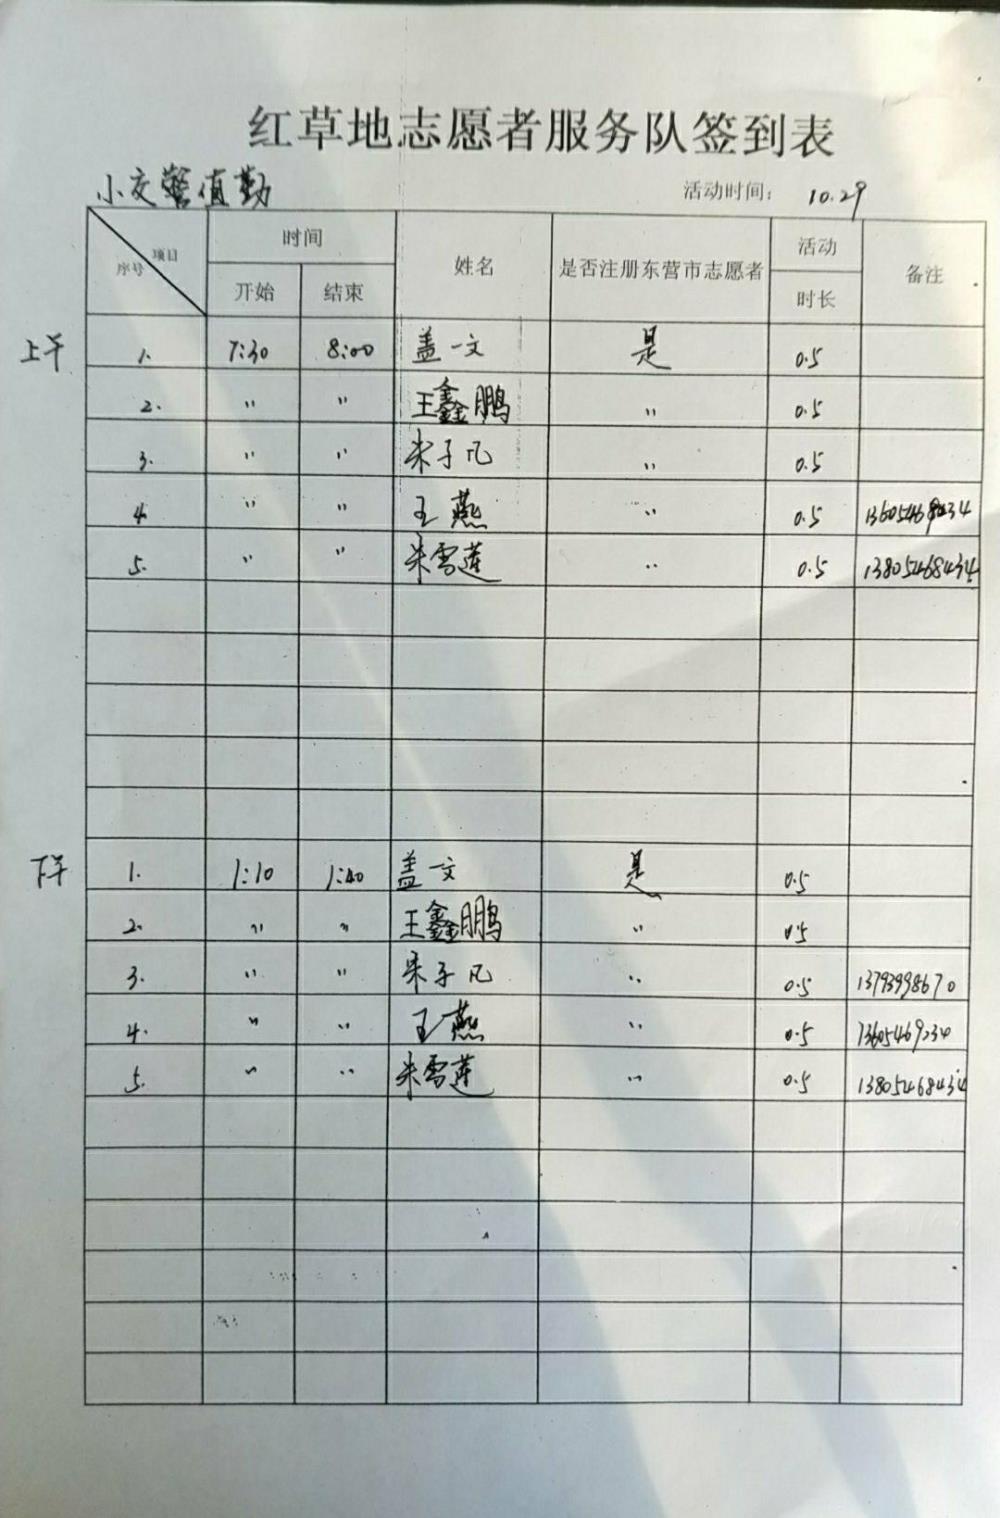 红草地志愿者服务队签到表
小交警值勤 活动时间： 10.29
项目 序号 时间 开始 结束 姓名 是否注册东营市志愿者 活动 时长 备注
上午 1. 7:30 8:00 盖一文 是 0.5
2. 〃 〃 王鑫鹏 〃 0.5
3. 〃 〃 朱子凡 〃 0.5
4. 〃 〃 王燕 〃 0.5
5. 〃 〃 朱雪莲 〃 0.5 13805468434
下午 1. 1:10 1:40 盖一文 是 0.5
2. 〃 〃 王鑫鹏 〃 0.5
3. 〃 〃 朱子凡 〃 0.5 13793998670
4. 〃 〃 王燕 〃 0.5
5. 〃 〃 朱雪莲 〃 0.5 13805468434